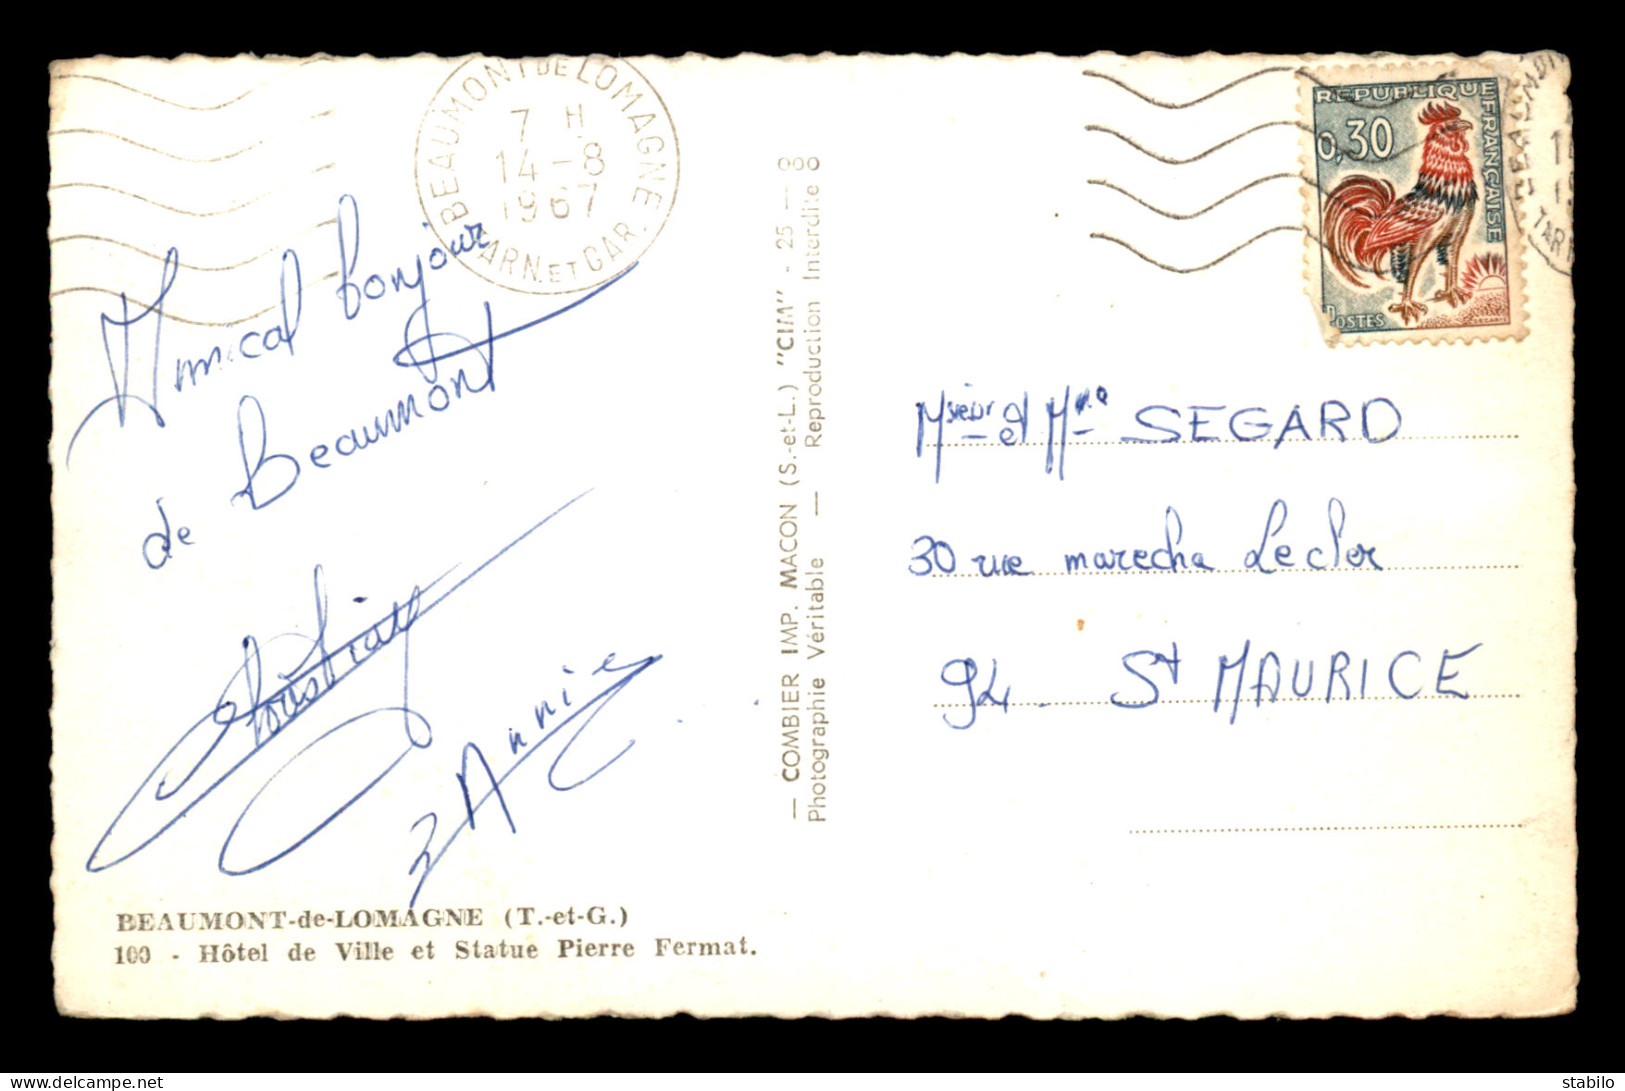 BEAUMONT DE LOMAGNE
7 H
14-8
1967
TARN ET GAR.
Amical bonjour
de Beaumont
Christian
Annie
BEAUMONT-de-LOMAGNE (T.-et-G.)
100 - Hôtel de Ville et Statue Pierre Fermat.
— COMBIER IMP. MACON (S.-et-L.) "CIM" - 25 —
Photographie Véritable — Reproduction Interdite
REPUBLIQUE FRANÇAISE
0,30
POSTES
DECARIS
BEAUMONT
TARN
Msieur et Mme SEGARD
30 rue marecha Lecler
94 St MAURICE
stabilo